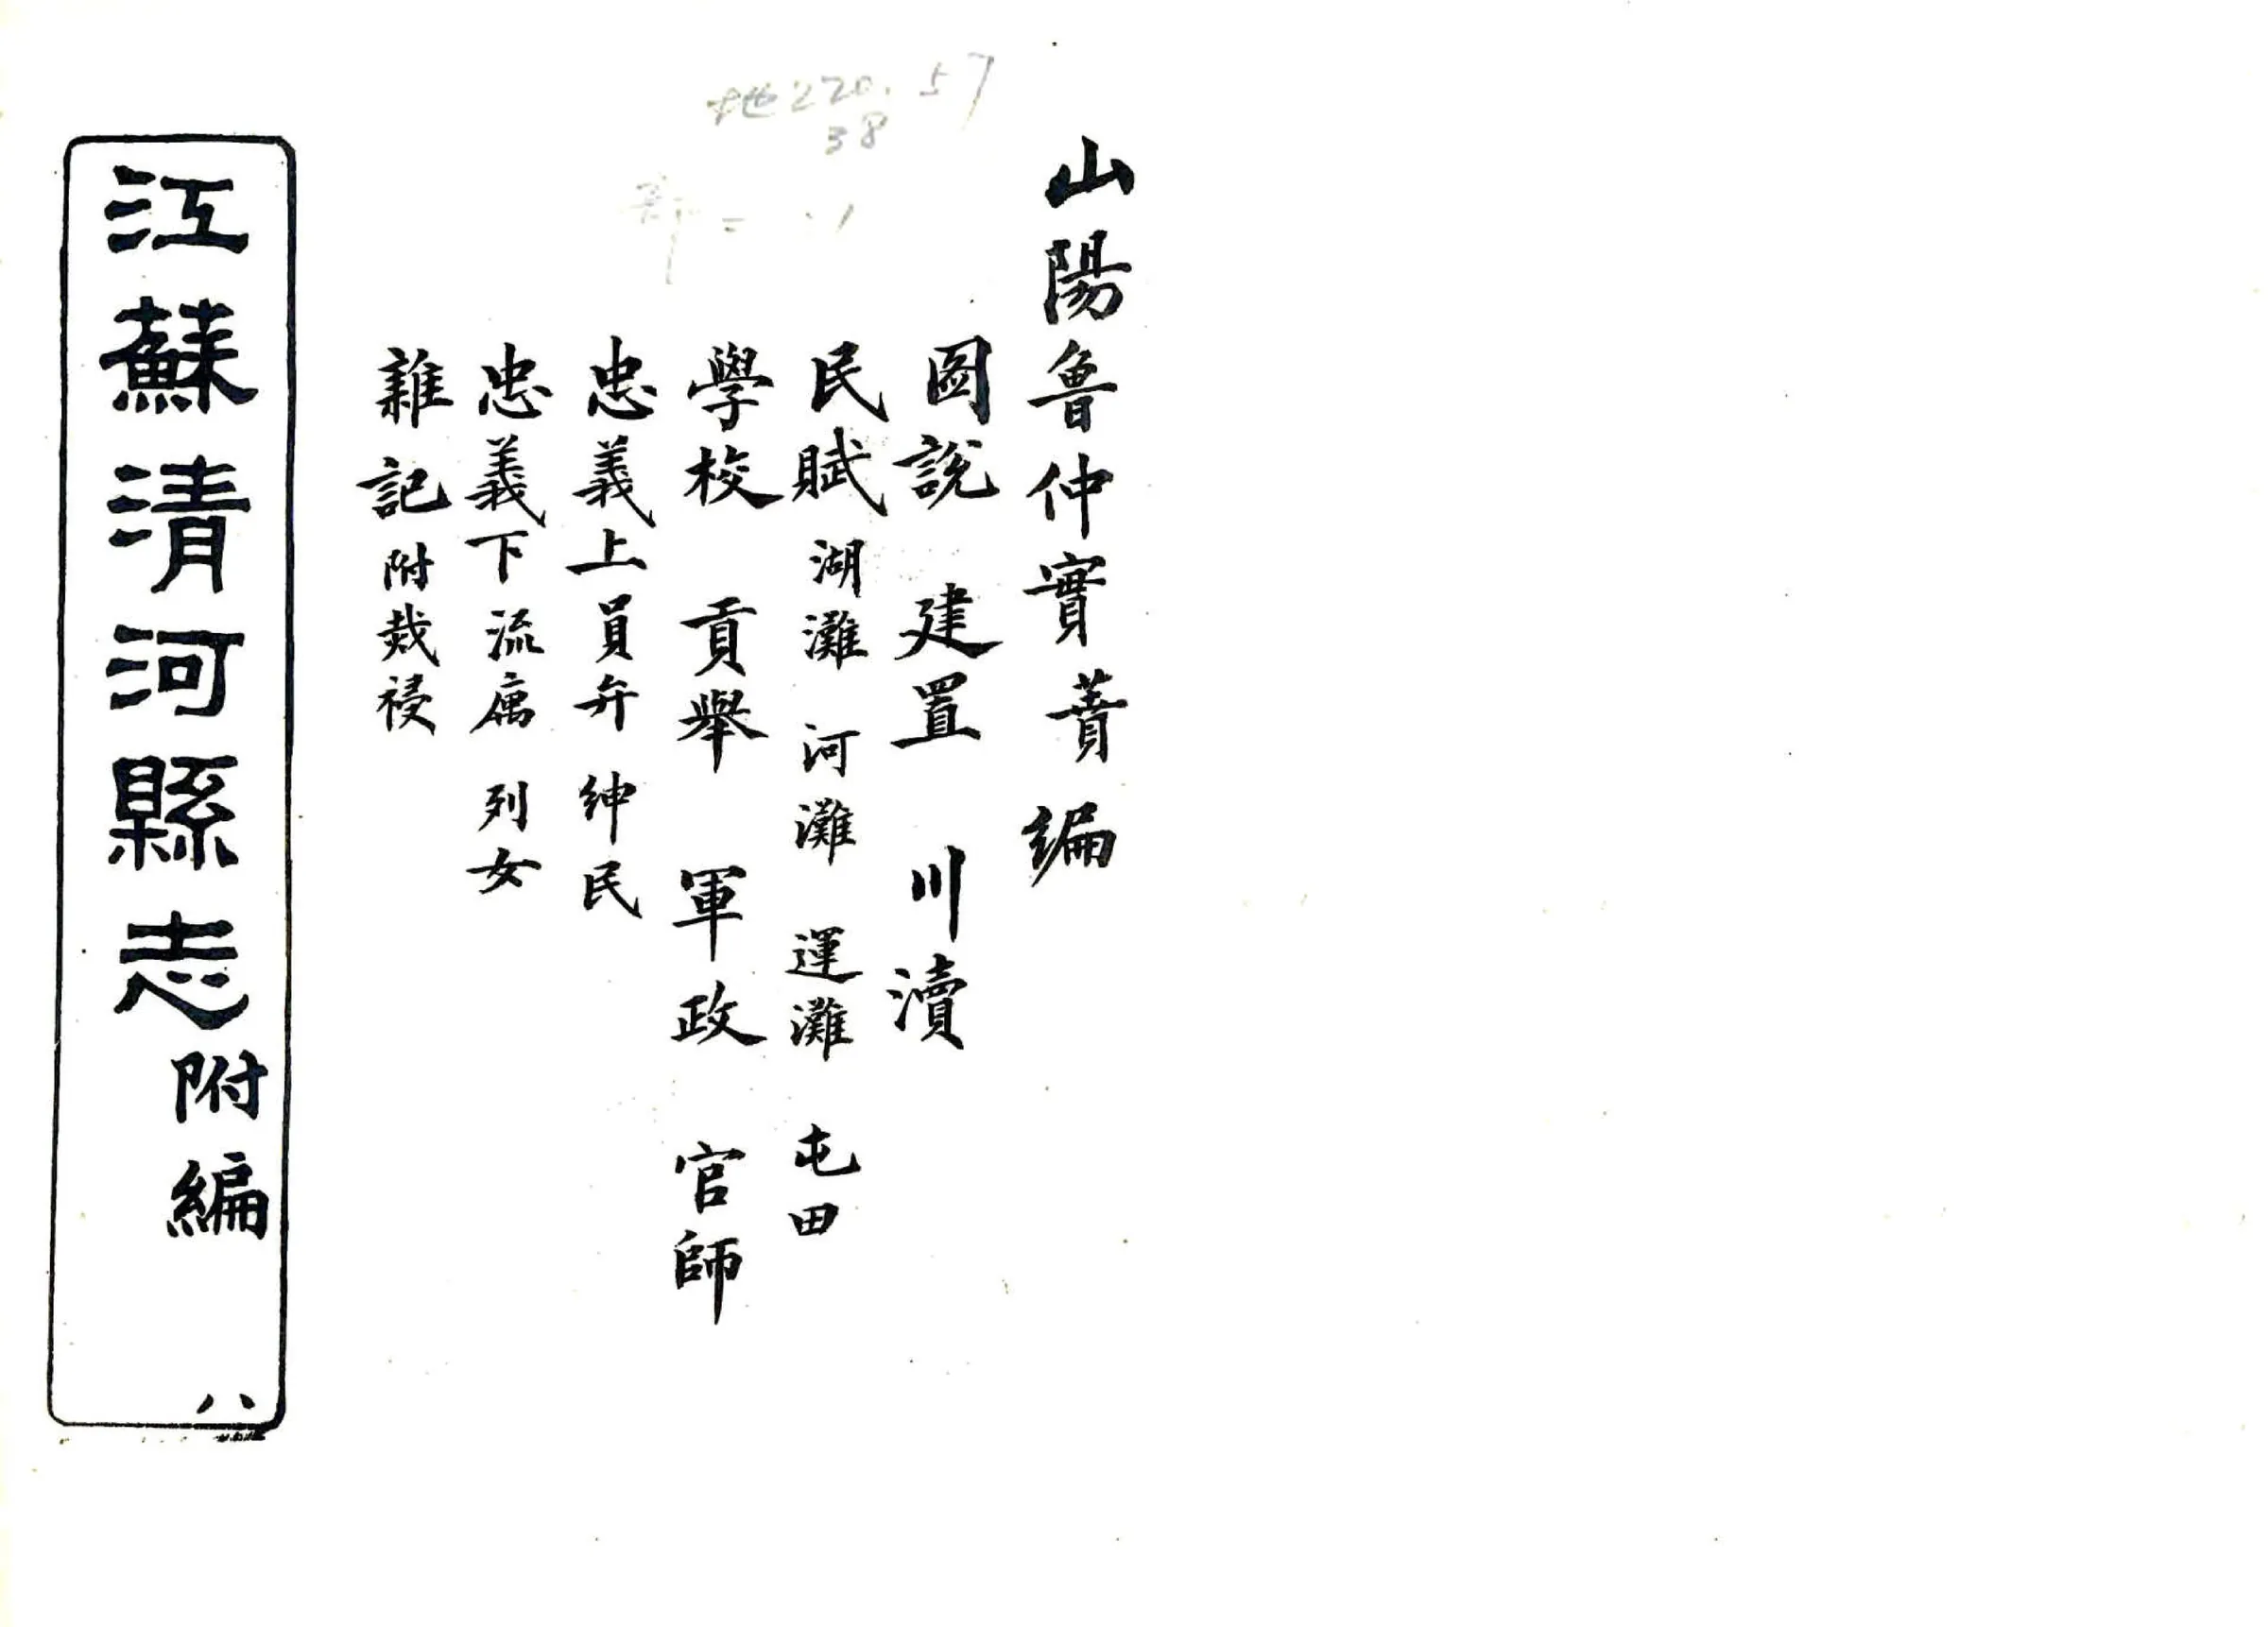 地220.57
38
山陽魯仲實蕡編
図說 建置 川瀆
民賦 湖灘 河灘 運灘 屯田
學校 貢舉 軍政 官師
忠義上 員弁 紳民
忠義下 流寓 列女
雜記 附烖祲
江蘇清河縣志附編
八